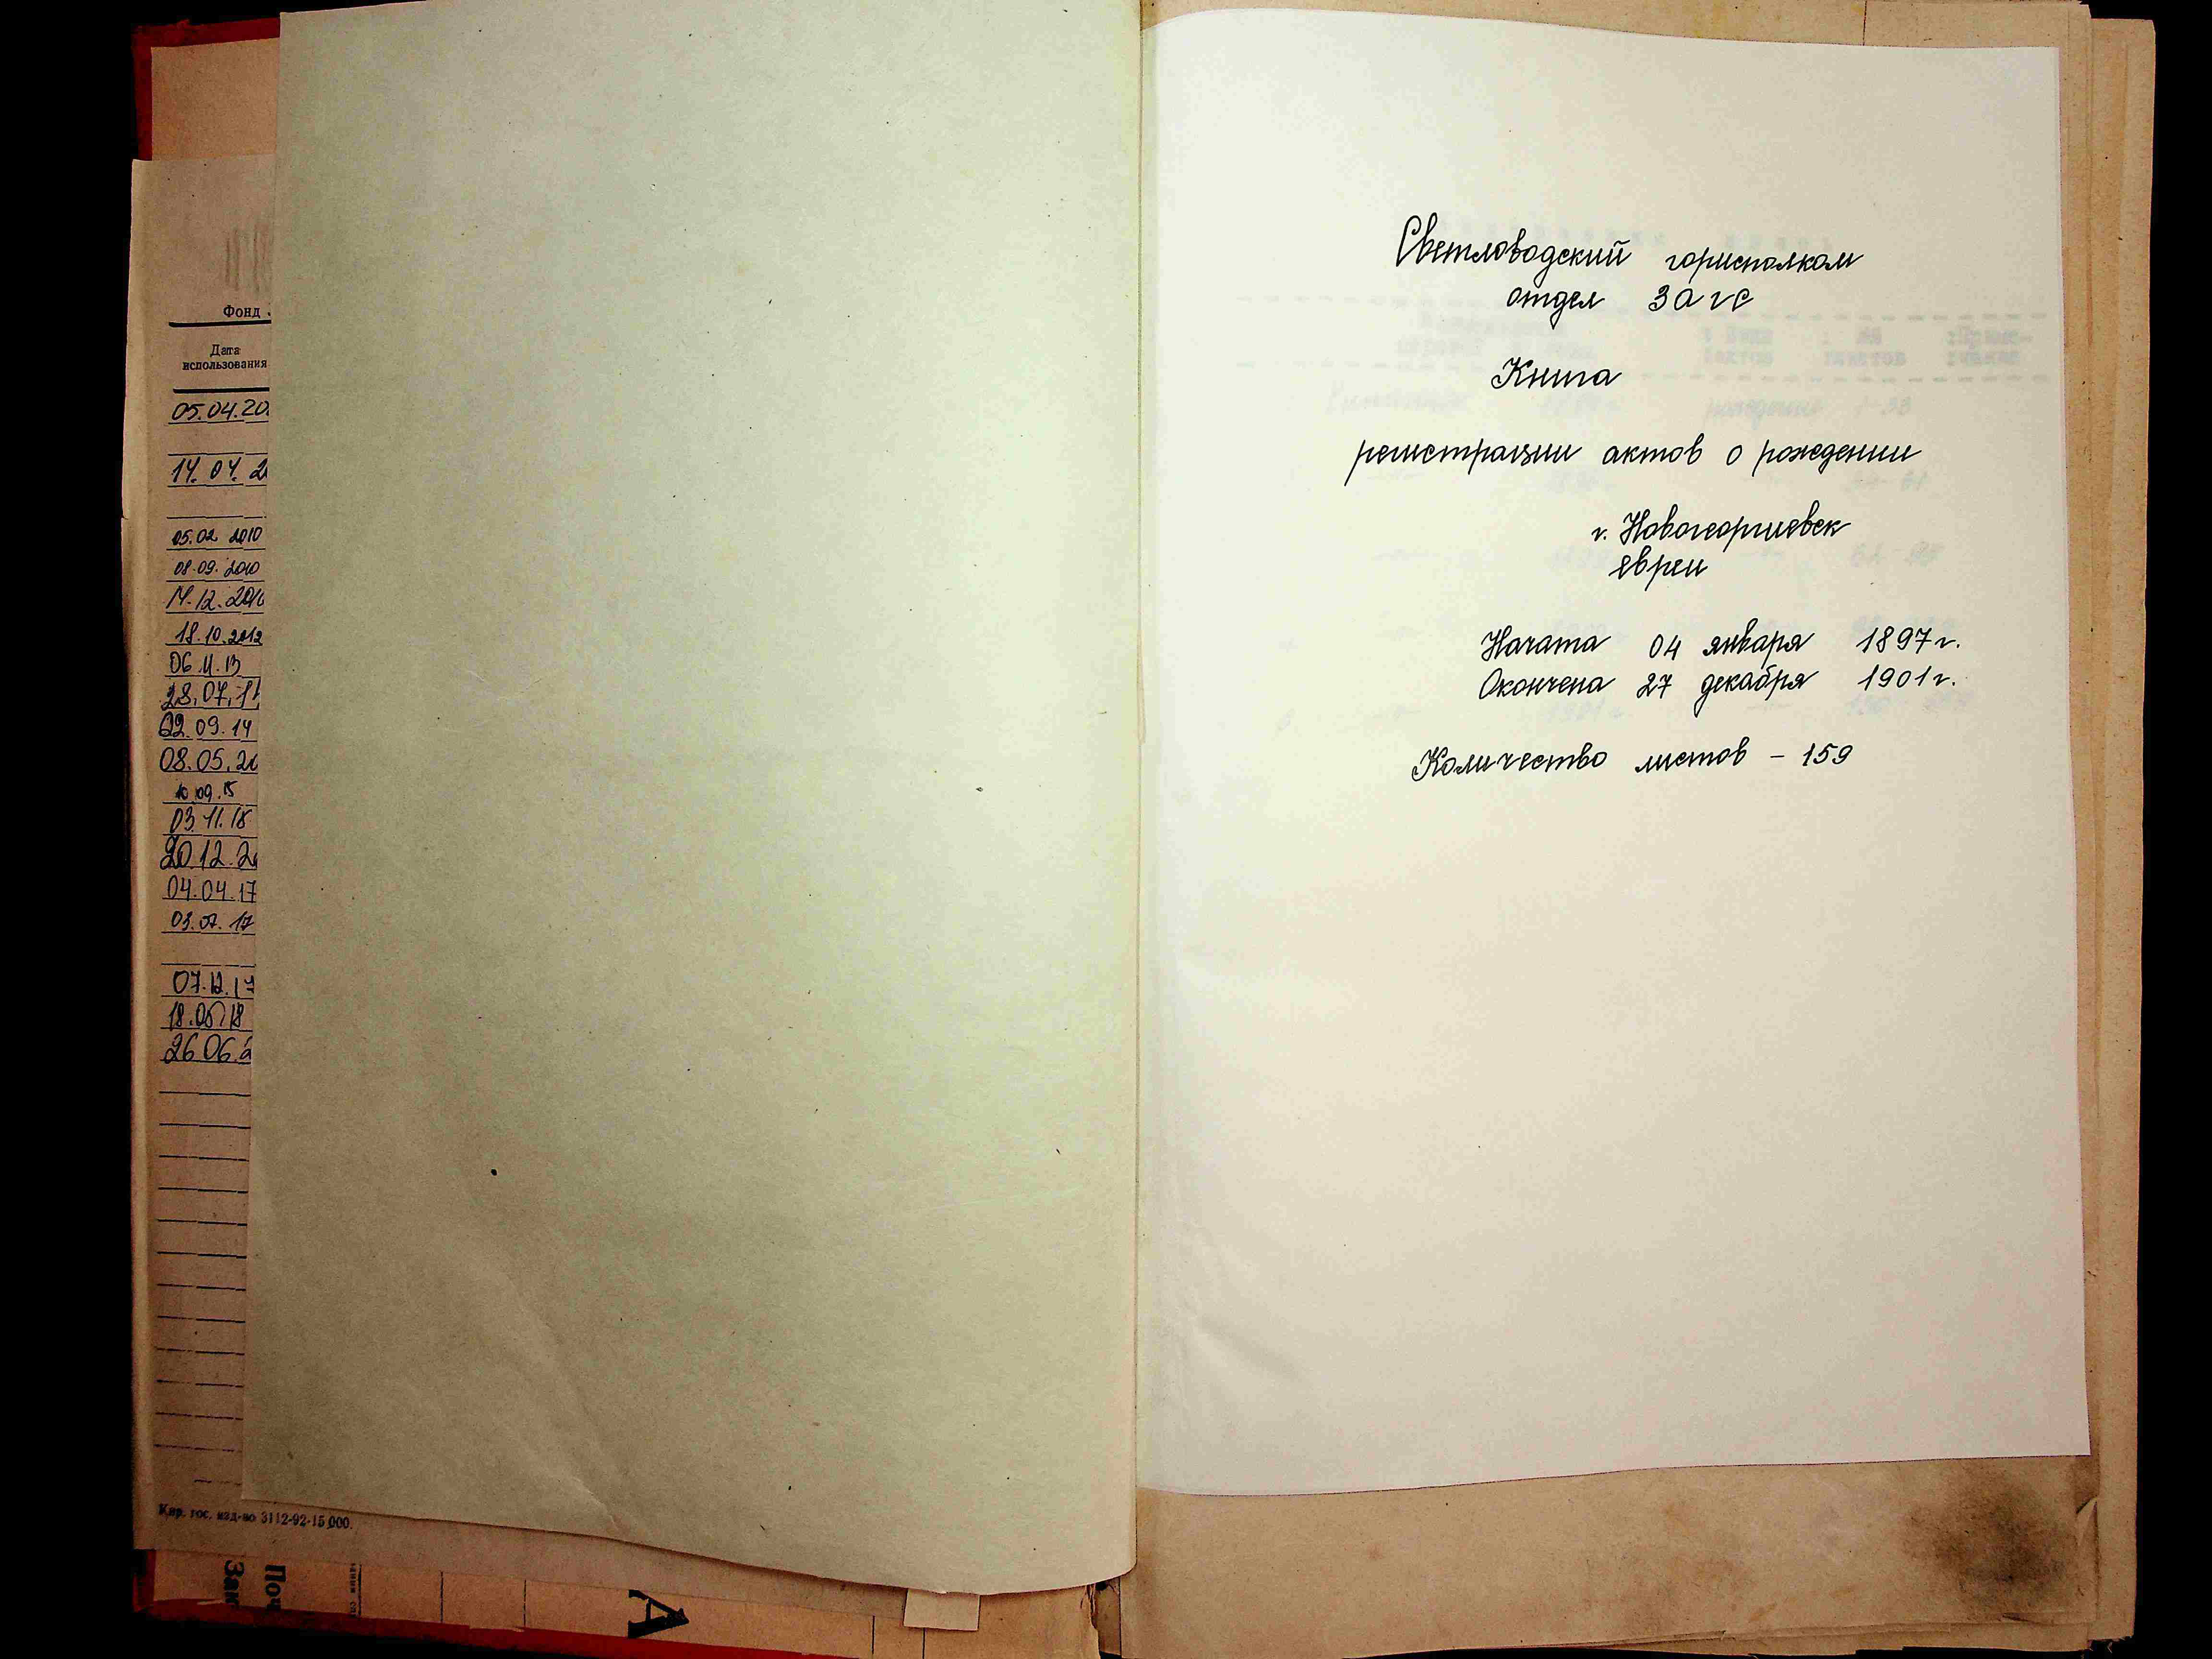 Фонд
Дата
использования
05.04.20
14.04.2
05.02 2010
08.09.2010
14.12.2010
18.10.2012
06.11.13
28.07.1
02.09.14
08.05.20
10.09.15
03.11.15
20.12.2
04.04.17
03.07.17
07.12.17
18.05.18
26.06.2
Кир. гос. изд-во 3112-92-15.000.
А
Светловодский горисполком
отдел ЗАГС
Книга
регистрации актов о рождении
г. Новогеоргиевск
евреи
Начата 04 января 1897г.
Окончена 27 декабря 1901г.
Количество листов – 159